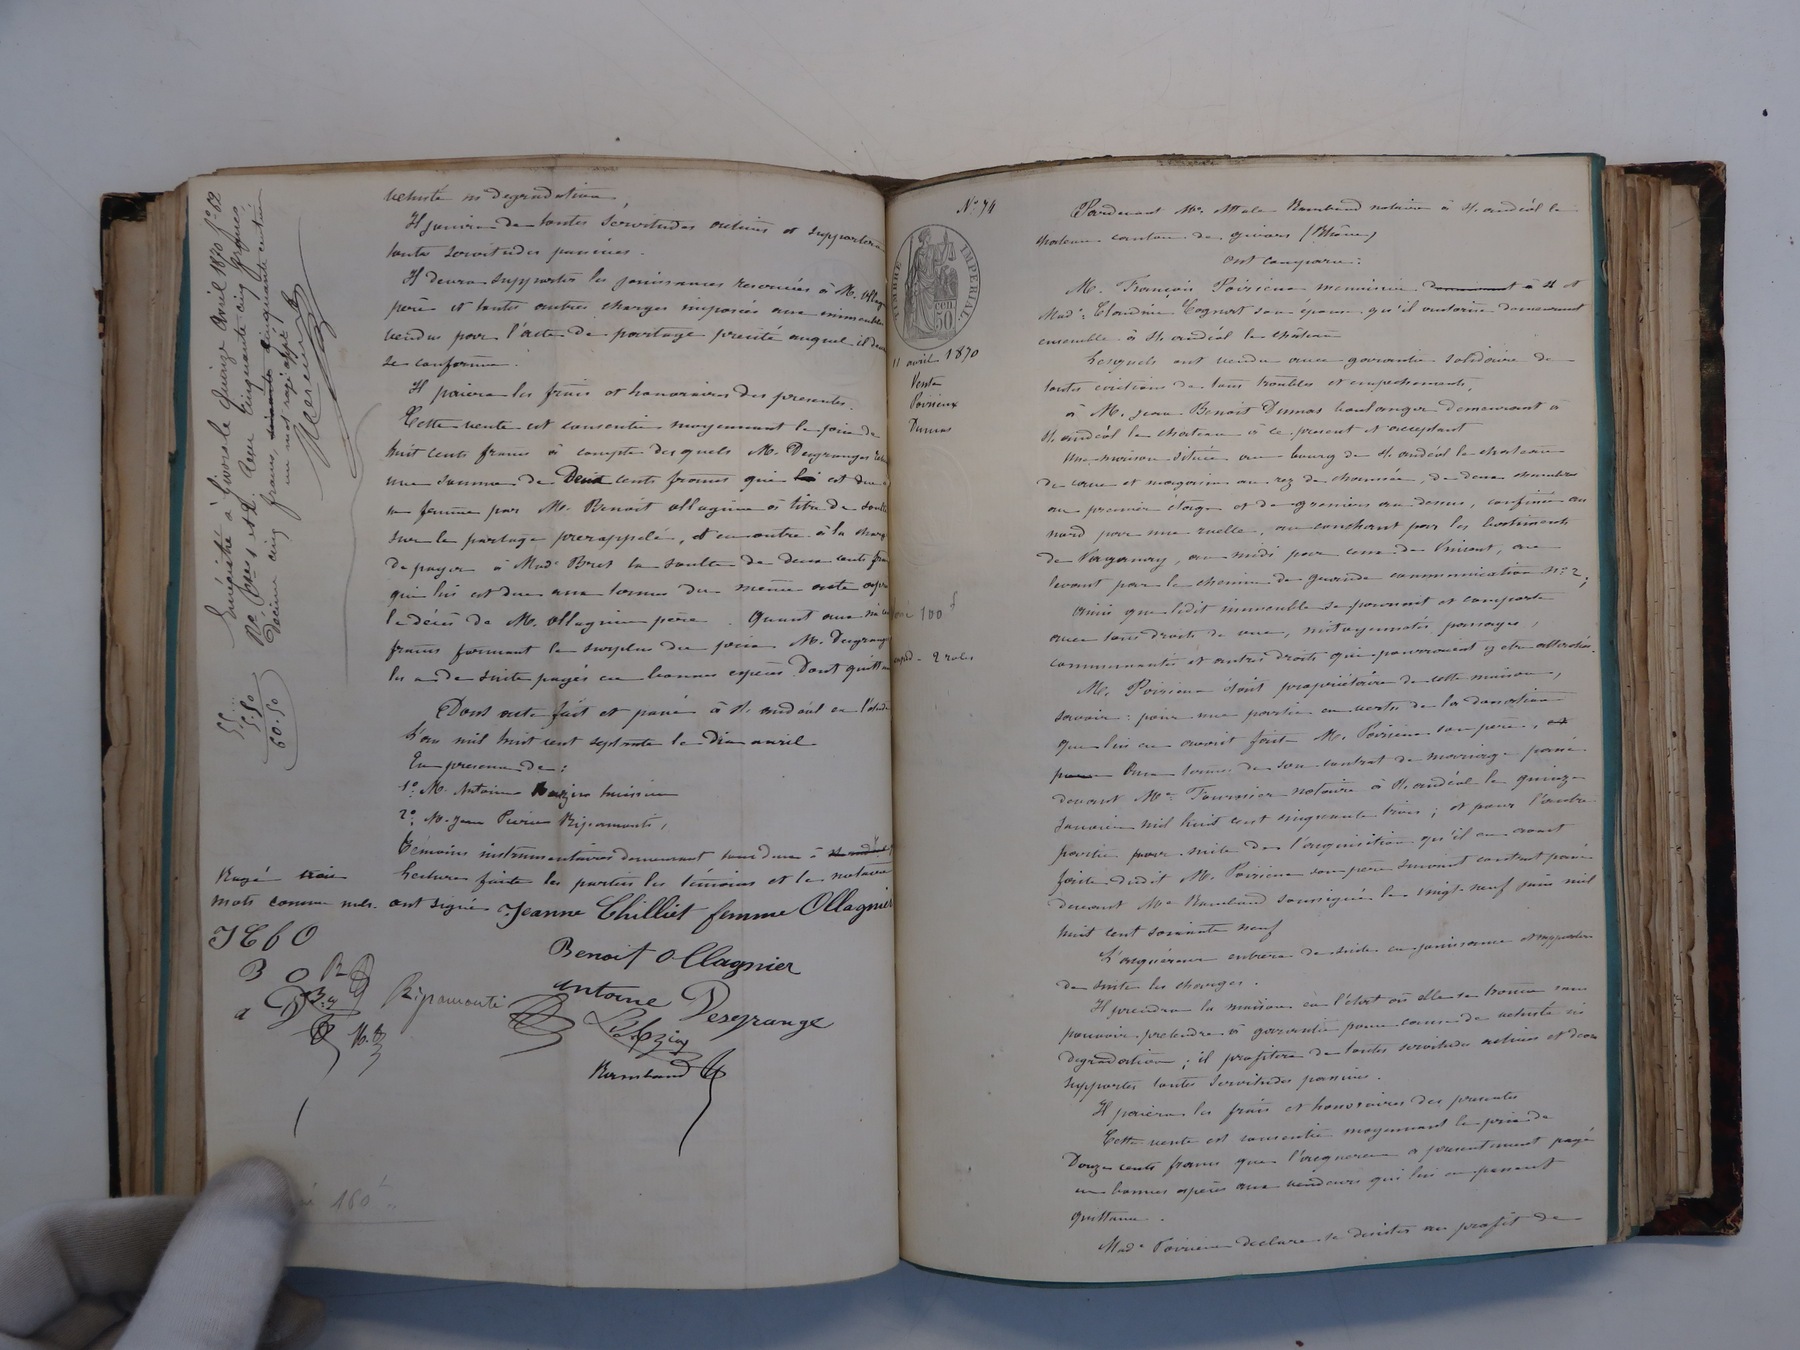 vétusté ni dégradation,
Il jouira de toutes servitudes actives et supportera
toutes servitudes passives.
Il devra supporter les jouissances reservées à M. Ollag
père et toutes autres charges imposées aux immeubles
vendus par l'acte de partage precité auquel il devra
se conformer.
Il paiera les frais et honoraires des presentes.
Cette vente est consentie moyennant le prix de
huit cents francs à compte desquels M. Desgranges
une somme de Deux cents francs qui lui est due
sa femme par M. Benoit Ollagnier à titre de soulte
sur le partage prerappelé, et en outre à la charge
de payer à Made Bret la soulte de deux cents fra
qui lui est due aux termes du même acte après
le décès de M. Ollagnier père. Quant aux
francs formant le surplus du prix M. Desgrange
les a de suite payés en bonnes espèces Dont quittan
Dont acte fait et passé à St andéol en l'étude
L'an mil huit cent septante le dix avril
En presence de:
1o M. Antoine huissier
2o M. Jean Pierre Ripamonti,
Témoins instrumentaires demeurant tous deux à
Lecture faite les parties les témoins et le notaire
ont signé Jeanne Chilliet femme Ollagnier
Benoit Ollagnier
antoine Desgrange
Ripamonti
Rambaud
Rayé trois
mots comme nuls.
J C f O
B O R
a D
Enregistré à Givors le Quinze Avril 1870 fo 62
Ro Cases 1 et 2. Reçu Cinquante cinq francs
Decime cinq francs, cinquante centimes
un mot rayé
55 "
5.50
60.50
160 f
No 74
TIMBRE IMPERIAL
50 cen
11 avril 1870
Vente
Poirieux
Dumas
100 f
exped - 2 roles
Pardevant Me Rambaud notaire à St andéol le
chateau canton de givors (Rhône)
Ont comparu:
M. François Poirieux menuisier demeurant à St et
Made Claudine Cognet son épouse qu'il autorise demeurant
ensemble à St andéol le château
Lesquels ont vendu avec garantie solidaire de
toutes evictions de tous troubles et empechements,
à M. Jean Benoit Dumas boulanger demeurant à
St andéol le chateau à ce present et acceptant
Une maison située au bourg de St andéol le chateau
de cave et magasin au rez de chaussée, de deux chambres
au premier étage et de greniers au dessus, confinée au
nord par une ruelle, au couchant par les batiments
de Varganay, au midi par ceux de Vincent, au
levant par le chemin de grande communication No 2,
Ainsi que ledit immeuble se poursuit et comporte
avec tous droits de vue, mitoyennetés, passages,
communautés et autres droits qui pourraient y etre attachés.
M. Poirieux était propriétaire de cette maison,
savoir: pour une partie en vertu de la donation
que lui en avait faite M. Poirieux son père,
aux termes de son contrat de mariage passé
devant Me Fournier notaire à St andéol le quinze
Janvier mil huit cent cinquante trois; et pour l'autre
partie par suite de l'acquisition qu'il en avait
faite dudit M. Poirieux son père suivant contrat passé
devant Me Rambaud soussigné le vingt-neuf juin mil
huit cent soixante neuf
L'acquéreur entrera de suite en jouissance et supportera
de suite les charges.
Il prendra la maison en l'état où elle se trouve sans
pouvoir pretendre à garantie pour cause de vétusté ni
dégradation; il profitera de toutes servitudes actives et devra
supporter toutes servitudes passives.
Il paiera les frais et honoraires des presentes
Cette vente est consentie moyennant le prix de
Douze cents francs que l'acquereur a presentement payé
en bonnes espèces aux vendeurs qui lui en passent
quittance.
Made Poirieux declare se desister au profit de